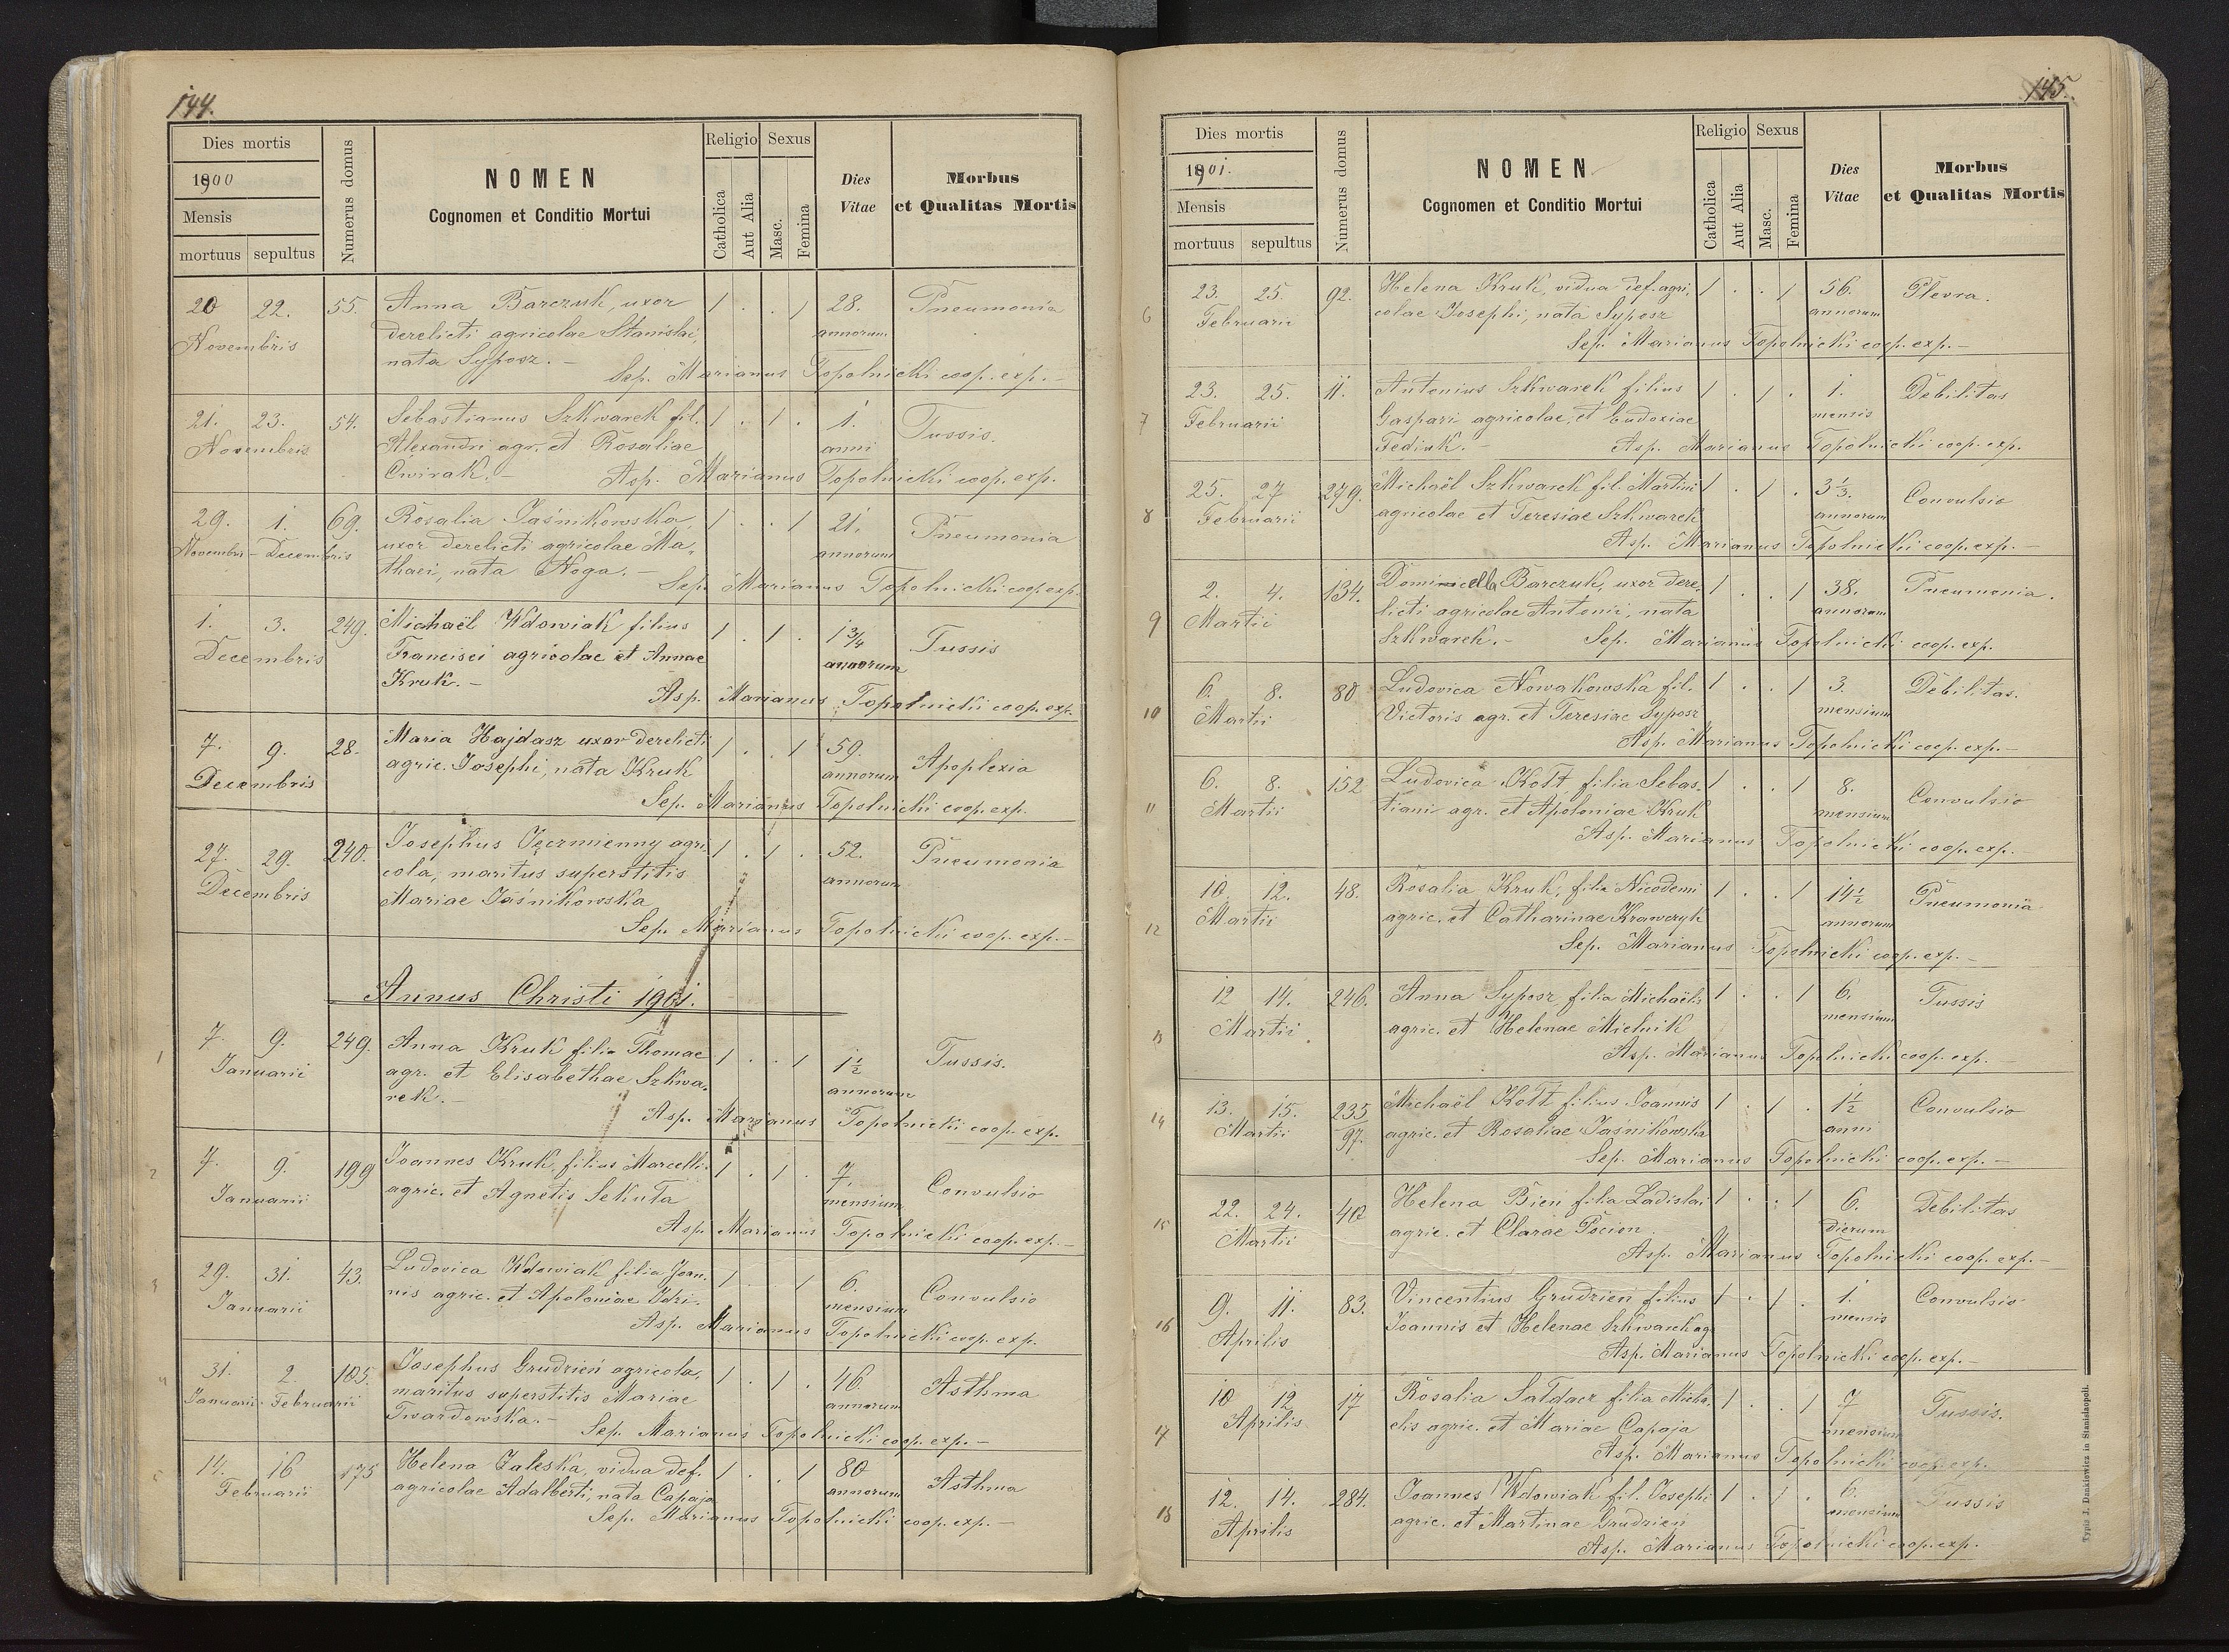 144.
Dies mortis
1900
Mensis
mortuus sepultus
Numerus domus
NOMEN
Cognomen et Conditio Mortui
Religio
Catholica
Aut Alia
Sexus
Masc.
Femina
Dies
Vitae
Morbus
et Qualitas Mortis
20 22. 55. Anna Barczuk, uxor 1 . . 1 28. Pneumonia
Novembris derelicti agricolae Stanislai, annorum
nata Syposz. –
Sep. Marianus Topolnicki coop. exp. –
21. 23. 54. Sebastianus Szkwarek fil. 1 . 1 . 1. Tussis.
Novembris Alexandri agr. et Rosaliae anni
Ćwirak. – Asp. Marianus Topolnicki coop. exp.
29. 1. 69. Rosalia Jaśnikowska, 1 . . 1 21. Pneumonia
Novembris – Decembris uxor derelicti agricolae Ma- annorum
thaei, nata Noga. –
Sep. Marianus Topolnicki coop. exp.
1. 3. 249. Michaël Wdowiak filius 1 . 1 . 1 3/4 Tussis
Decembris Francisci agricolae et Annae annorum
Kruk. –
Asp. Marianus Topolnicki coop. exp.
7. 9. 28. Maria Hajdasz uxor derelicti 1 . . 1 59. Apoplexia
Decembris agric. Josephi, nata Kruk annorum
Sep. Marianus Topolnicki coop. exp.
27. 29. 240. Josephus Jęczmienny agri- 1 . 1 . 52. Pneumonia
Decembris cola, maritus superstitis annorum
Mariae Jaśnikowska
Sep. Marianus Topolnicki coop. exp. –
Annus Christi 1901.
1 7. 9. 249. Anna Kruk filia Thomae 1 . . 1 1 1/2 Tussis.
Januarii agr. et Elisabethae Szkwa- annorum
rek. –
Asp. Marianus Topolnicki coop. exp.
2 7. 9. 199 Joannes Kruk, filius Marcelli 1 . 1 . 7. Convulsio
Januarii agric. et Agnetis Sekuła mensium
Asp. Marianus Topolnicki coop. exp. –
3 29. 31. 43. Ludovica Wdowiak filia Joan- 1 . . 1 6. Convulsio
Januarii nis agric. et Apoloniae Idzi- mensium
Asp. Marianus Topolnicki coop. exp.
4 31. 2. 105. Josephus Grudzień agricola, 1 . 1 . 46. Asthma
Januarii – Februarii maritus superstitis Mariae annorum
Twardowska. –
Sep. Marianus Topolnicki coop. exp. –
5 14. 16 175 Helena Zaleska, vidua def. 1 . . 1 80 Asthma
Februarii agricolae Adalberti, nata Capaja annorum
Sep. Marianus Topolnicki coop. exp. –
145.
Dies mortis
1901.
Mensis
mortuus sepultus
Numerus domus
NOMEN
Cognomen et Conditio Mortui
Religio
Catholica
Aut Alia
Sexus
Masc.
Femina
Dies
Vitae
Morbus
et Qualitas Mortis
6 23. 25. 92. Helena Kruk, vidua def. agri- 1 . . 1 56. Plevra.
Februarii colae Josephi, nata Syposz annorum
Sep. Marianus Topolnicki coop. exp. –
7 23. 25. 11. Antonius Szkwarek filius 1 . 1 . 1. Debilitas
Februarii Gaspari agricolae, et Eudoxiae mensis
Fediuk. – Asp. Marianus Topolnicki coop. exp.
8 25. 27 279. Michaël Szkwarek fil. Martini 1 . 1 . 3 1/3. Convulsio
Februarii agricolae et Teresiae Szkwarek annorum
Asp. Marianus Topolnicki coop. exp. –
9 2. 4. 134. Dominicella Barczuk, uxor dere- 1 . . 1 38. Pneumonia.
Martii licti agricolae Antonii, nata annorum
Szkwarek. – Sep. Marianus Topolnicki coop. exp.
10 6. 8. 80 Ludovica Nowakowska fil. 1 . . 1 3. Debilitas.
Martii Victoris agr. et Teresiae Syposz mensium
Asp. Marianus Topolnicki coop. exp. –
11 6. 8. 152 Ludovica Kott filia Sebas- 1 . . 1 8. Convulsio
Martii tiani agr. et Apoloniae Kruk mensium
Asp. Marianus Topolnicki coop. exp. –
12 10. 12. 48. Rosalia Kruk, filia Nicodemi 1 . . 1 14 1/2 Pneumonia
Martii agric. et Catharinae Krawczyk annorum
Sep. Marianus Topolnicki coop. exp. –
13 12 14. 246. Anna Syposz filia Michaëlis 1 . . 1 6. Tussis
Martii agric. et Helenae Mielnik mensium
Asp. Marianus Topolnicki coop. exp. –
14 13. 15. 235 Michaël Kott filius Joannis 1 . 1 . 1 1/2 Convulsio
Martii 97. agric. et Rosaliae Jaśnikowska anni
Sep. Marianus Topolnicki coop. exp. –
15 22. 24. 40 Helena Bień filia Ladislai 1 . . 1 6. Debilitas
Martii agric. et Clarae Pocion dierum
Asp. Marianus Topolnicki coop. exp. –
16 9. 11. 83. Vincentius Grudzień filius 1 . 1 . 1. Convulsio
Aprilis Joannis et Helenae Szkwarek ag. mensis
Asp. Marianus Topolnicki coop. exp. –
17 10 12 17 Rosalia Sałdacz filia Micha- 1 . . 1 7 Tussis.
Aprilis elis agric. et Mariae Capaja mensium
Asp. Marianus Topolnicki coop. exp.
18 12. 14. 284. Joannes Wdowiak fil. Josephi 1 . 1 . 6. Tussis
Aprilis agric. et Martinae Grudzień mensium
Asp. Marianus Topolnicki coop. exp.
Typis J. Dankiewicz in Stanislaopoli.